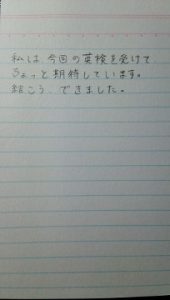 私は、今回の英検を受けて、
ちょっと期待しています。
結こう、できました。